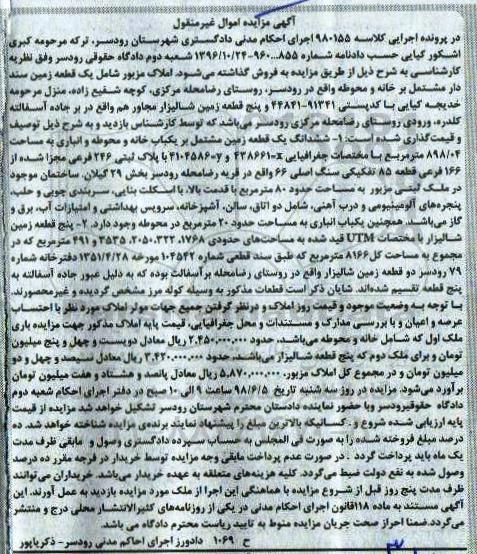 آگهی مزایده اموال غیرمنقول
در پرونده اجرایی کلاسه ۹۸۰۱۵۵ اجرای احکام مدنی دادگستری شهرستان رودسر، ترکه مرحومه کبری
اشکور کیایی حسب دادنامه شماره ۸۵۵...۹۶۰-۱۳۹۶/۱۰/۲۴ شعبه دوم دادگاه حقوقی رودسر وفق نظریه
کارشناسی به شرح ذیل از طریق مزایده به فروش گذاشته می‌شود. املاک مزبور شامل یک قطعه زمین سند
دار مشتمل بر خانه و محوطه واقع در رودسر، روستای رضامحله مرکزی، کوچه شفیع زاده، منزل مرحومه
خدیجه کیایی با کدپستی ۹۱۳۴۱-۴۴۸۴۱ و پنج قطعه زمین شالیزار مجاور هم واقع در بر جاده آسفالته
کلدره، ورودی روستای رضامحله مرکزی رودسر می‌باشد که توسط کارشناس بازدید و به شرح ذیل توصیف
و قیمت‌گذاری شده است: ۱- ششدانگ یک قطعه زمین مشتمل بر یکباب خانه و محوطه و انباری به مساحت
۸۹۸/۰۴ مترمربع با مختصات جغرافیایی x=۴۳۸۶۶۱ و y=۴۱۰۴۵۸۶ با پلاک ثبتی ۲۴۶ فرعی مجزا شده از
۱۶۶ فرعی قطعه ۸۵ تفکیکی سنگ اصلی ۶۶ واقع در قریه رضامحله رودسر بخش ۲۹ گیلان. ساختمان موجود
در ملک ثبتی مزبور به مساحت حدود ۸۰ مترمربع با قدمت بالا، با اسکلت بنایی، سربندی چوبی و حلب،
پنجره‌های آلومینیومی و درب آهنی، شامل دو اتاق، سالن، آشپزخانه، سرویس بهداشتی و امتیازات آب، برق و
گاز می‌باشد. همچنین یکباب انباری به مساحت حدود ۲۰ مترمربع در محوطه وجود دارد. ۲- پنج قطعه زمین
شالیزار با مختصات UTM قید شده به مساحت‌های حدودی ۱۷۶۸، ۳۲۲، ۲۰۵۰، ۳۵۳۵ و ۴۹۱ مترمربع که در
مجموع به مساحت کل ۸۱۶۶ مترمربع که طبق سند قطعی شماره ۱۰۴۵۴۲ مورخه ۱۳۵۱/۴/۲۸ دفترخانه شماره
۷۹ رودسر دو قطعه زمین شالیزار واقع در روستای رضامحله برآسفالت بوده که به دلیل عبور جاده آسفالته به
پنج قطعه تقسیم شده‌اند. شایان ذکر است قطعات مذکور به وسیله کوله مرز مشخص گردیده و غیرمحصورند.
با توجه به وضعیت موجود و قیمت روز املاک و درنظر گرفتن جمیع جهات موثر املاک مورد نظر با احتساب
عرصه و اعیان و با بررسی مدارک و مستندات و محل جغرافیایی، قیمت پایه املاک مذکور جهت مزایده برای
ملک اول که شامل خانه و محوطه می‌باشد، حدود ۲.۴۵۰.۰۰۰.۰۰۰ ریال معادل دویست و چهل و پنج میلیون
تومان و برای ملک دوم که پنج قطعه شالیزار می‌باشد، حدود ۳.۴۲۰.۰۰۰.۰۰۰ ریال معادل سیصد و چهل و دو
میلیون تومان و در مجموع کل املاک مزبور، ۵.۸۷۰.۰۰۰.۰۰۰ ریال معادل پانصد و هشتاد و هفت میلیون تومان
برآورد می‌شود. مزایده در روز سه شنبه تاریخ ۹۸/۶/۵ ساعت ۹ الی ۱۰ صبح در دفتر اجرای احکام شعبه دوم
دادگاه حقوقیرودسر وبا حضور نماینده دادستان محترم شهرستان رودسر تشکیل خواهد شد مزایده از قیمت
پایه ارزیابی شده شروع و . کسانیکه بالاترین مبلغ را پیشنهاد نمایند برنده‌ی مزایده شناخته خواهد شد. ده
درصد مبلغ فروخته شده را به صورت فی المجلس به حساب سپرده دادگستری وصول و مابقی ظرف مدت
یک ماه باید پرداخت گردد . در صورت عدم پرداخت مابقی وجه مزایده توسط خریدار در فرجه مقرر ده درصد
وصول شده به نفع دولت ضبط می‌گردد. کلیه هزینه‌های متعلقه به عهده خریدار می‌باشد. خریداران می‌توانند
ظرف مدت پنج روز قبل از شروع مزایده با هماهنگی این اجرا از ملک مورد مزایده بازدید به عمل آورند. این
آگهی مستند به ماده ۱۱۸قانون اجرای احکام مدنی در یکی از روزنامه‌های کثیرالانتشار محلی درج و منتشر
می‌گردد.ضمنا احراز صحت جریان مزایده منوط به تایید ریاست محترم دادگاه می باشد.
ح ۱۰۶۹ دادورز اجرای احاکم مدنی رودسر- ذکریاپور